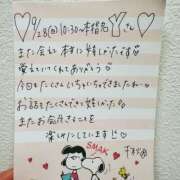 9/28(日)10:30〜本指名Yさん
また会えて本当に嬉しかったです
覚えていてくれてありがとう♡
今日もたくさんいちゃいちゃできましたね♡
お話もたくさんできて嬉しかった
またお会いできることを
楽しみにしています!♡
SMAK